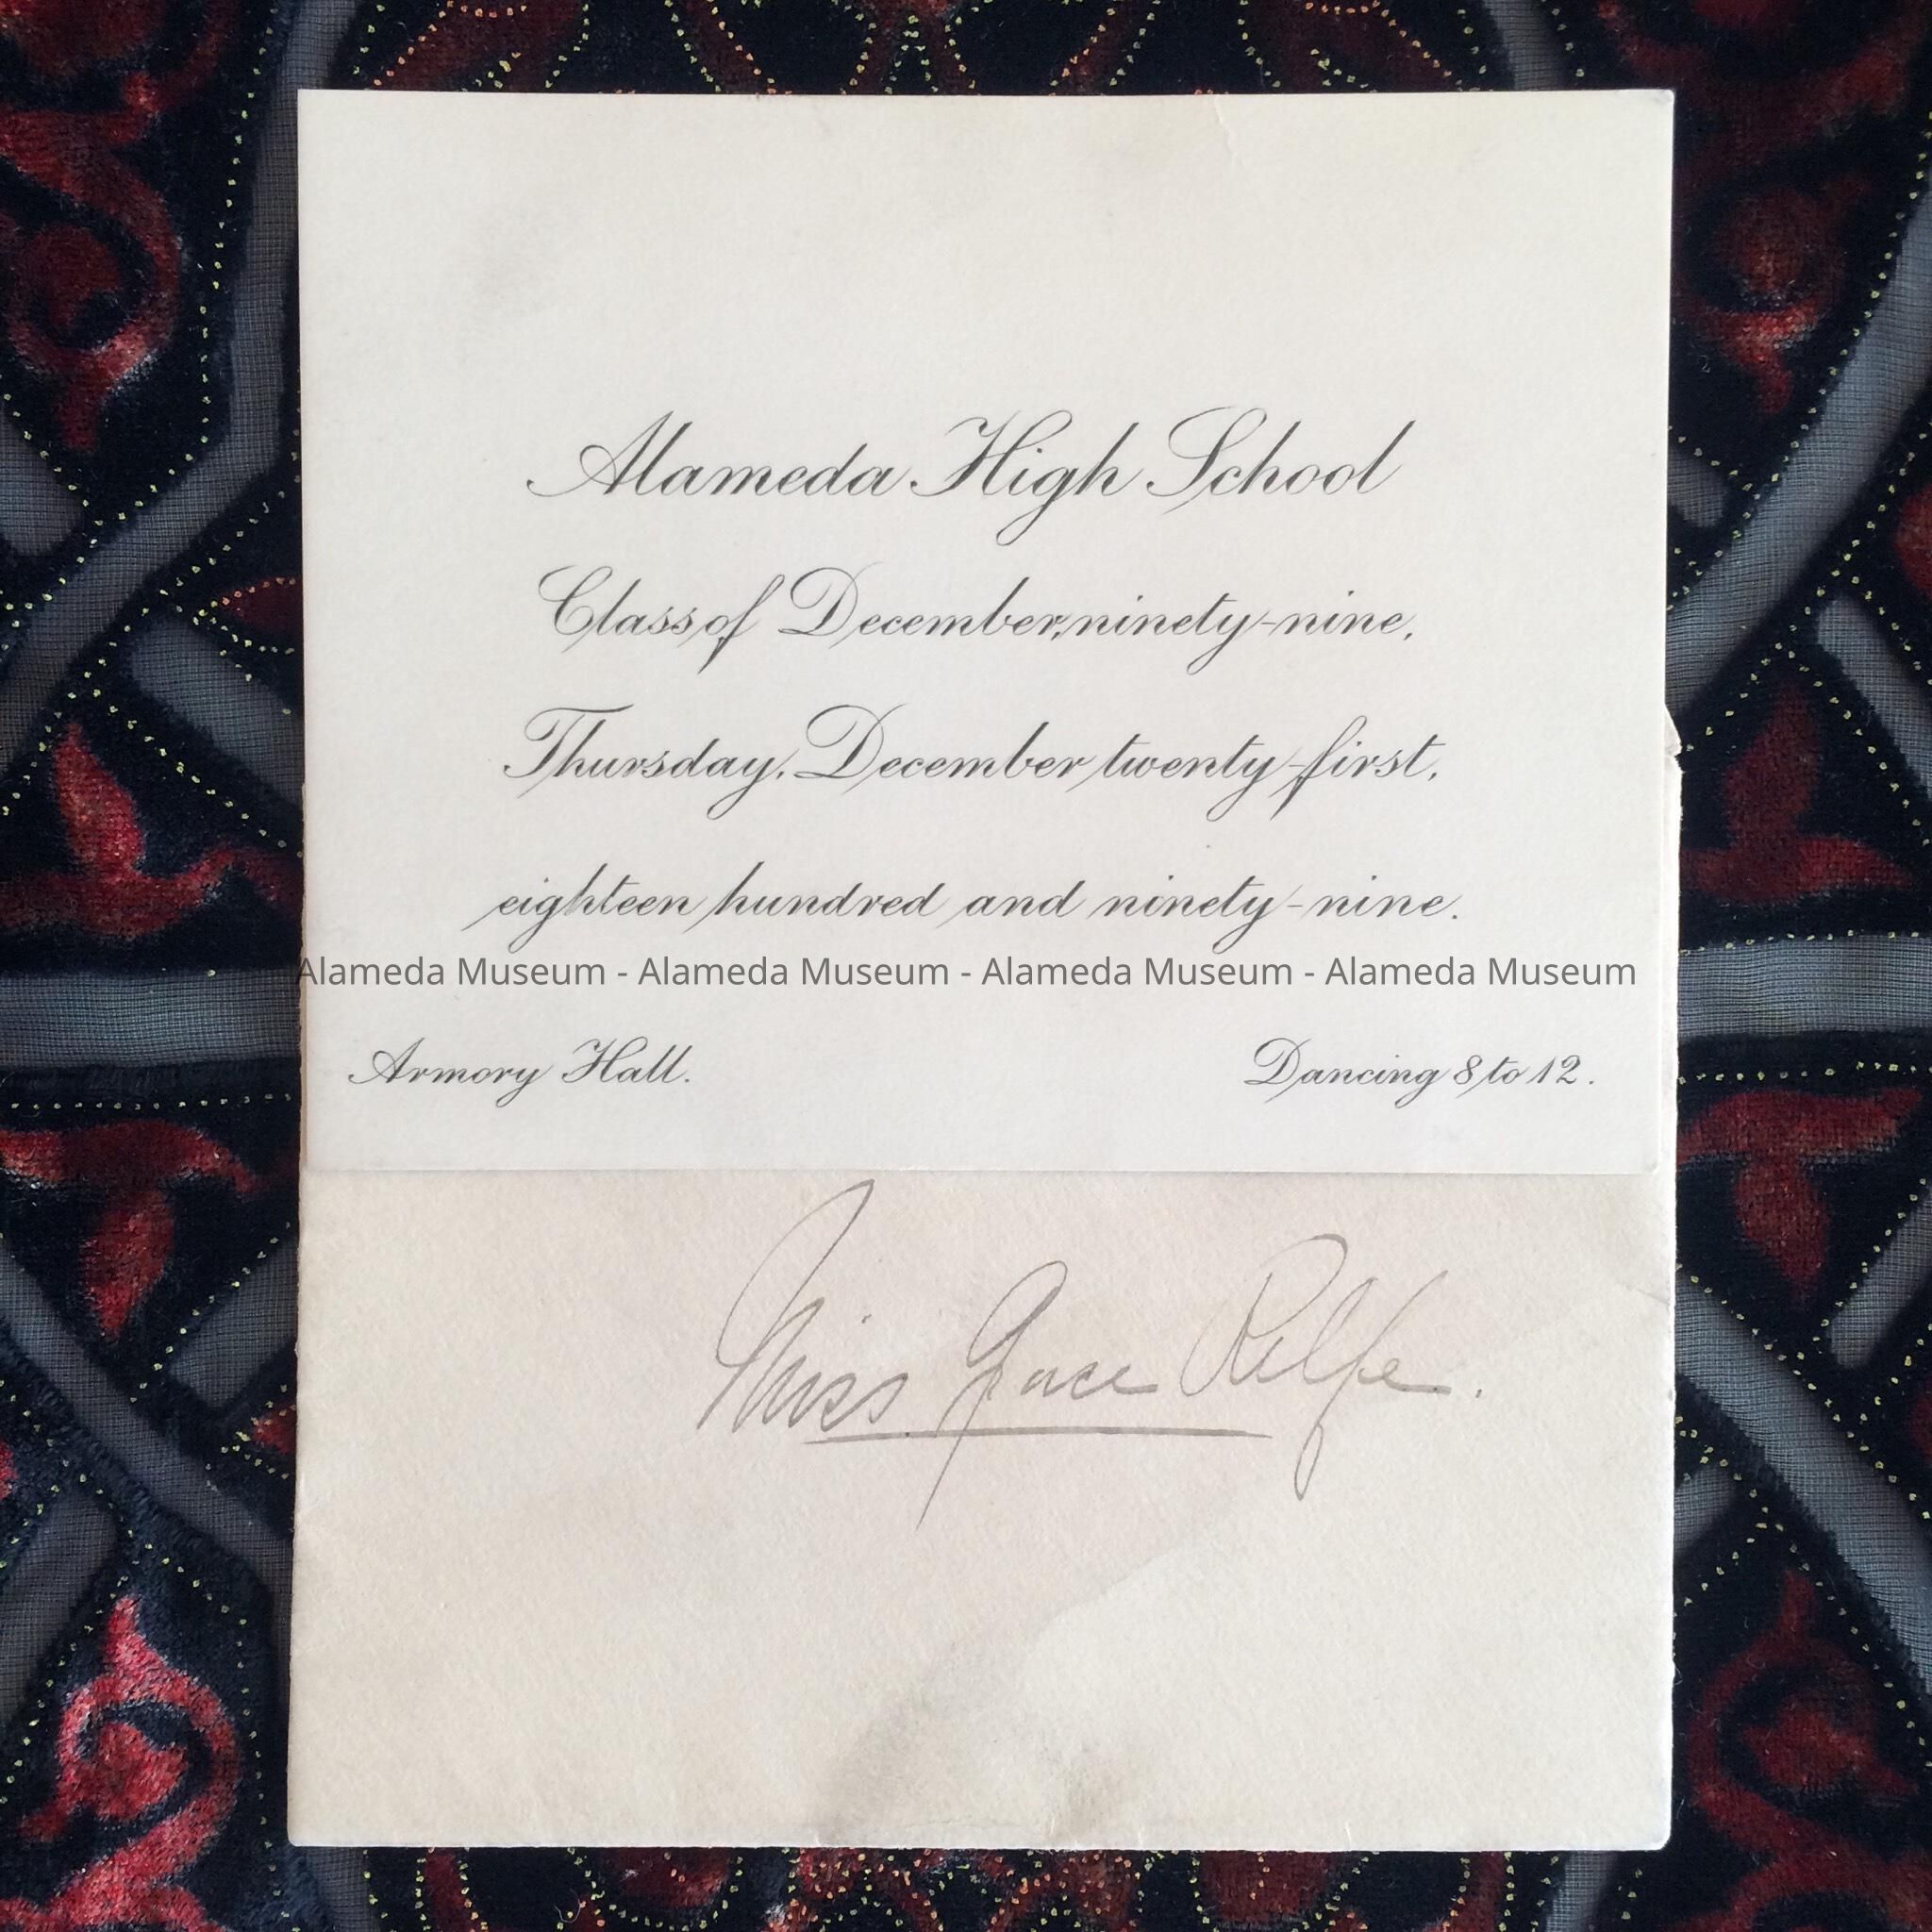 Alameda High School
Class of December, ninety-nine,
Thursday, December twenty-first,
eighteen hundred and ninety-nine.
Alameda Museum - Alameda Museum - Alameda Museum - Alameda Museum
Armory Hall. Dancing 8 to 12.
Miss Grace Relfe.